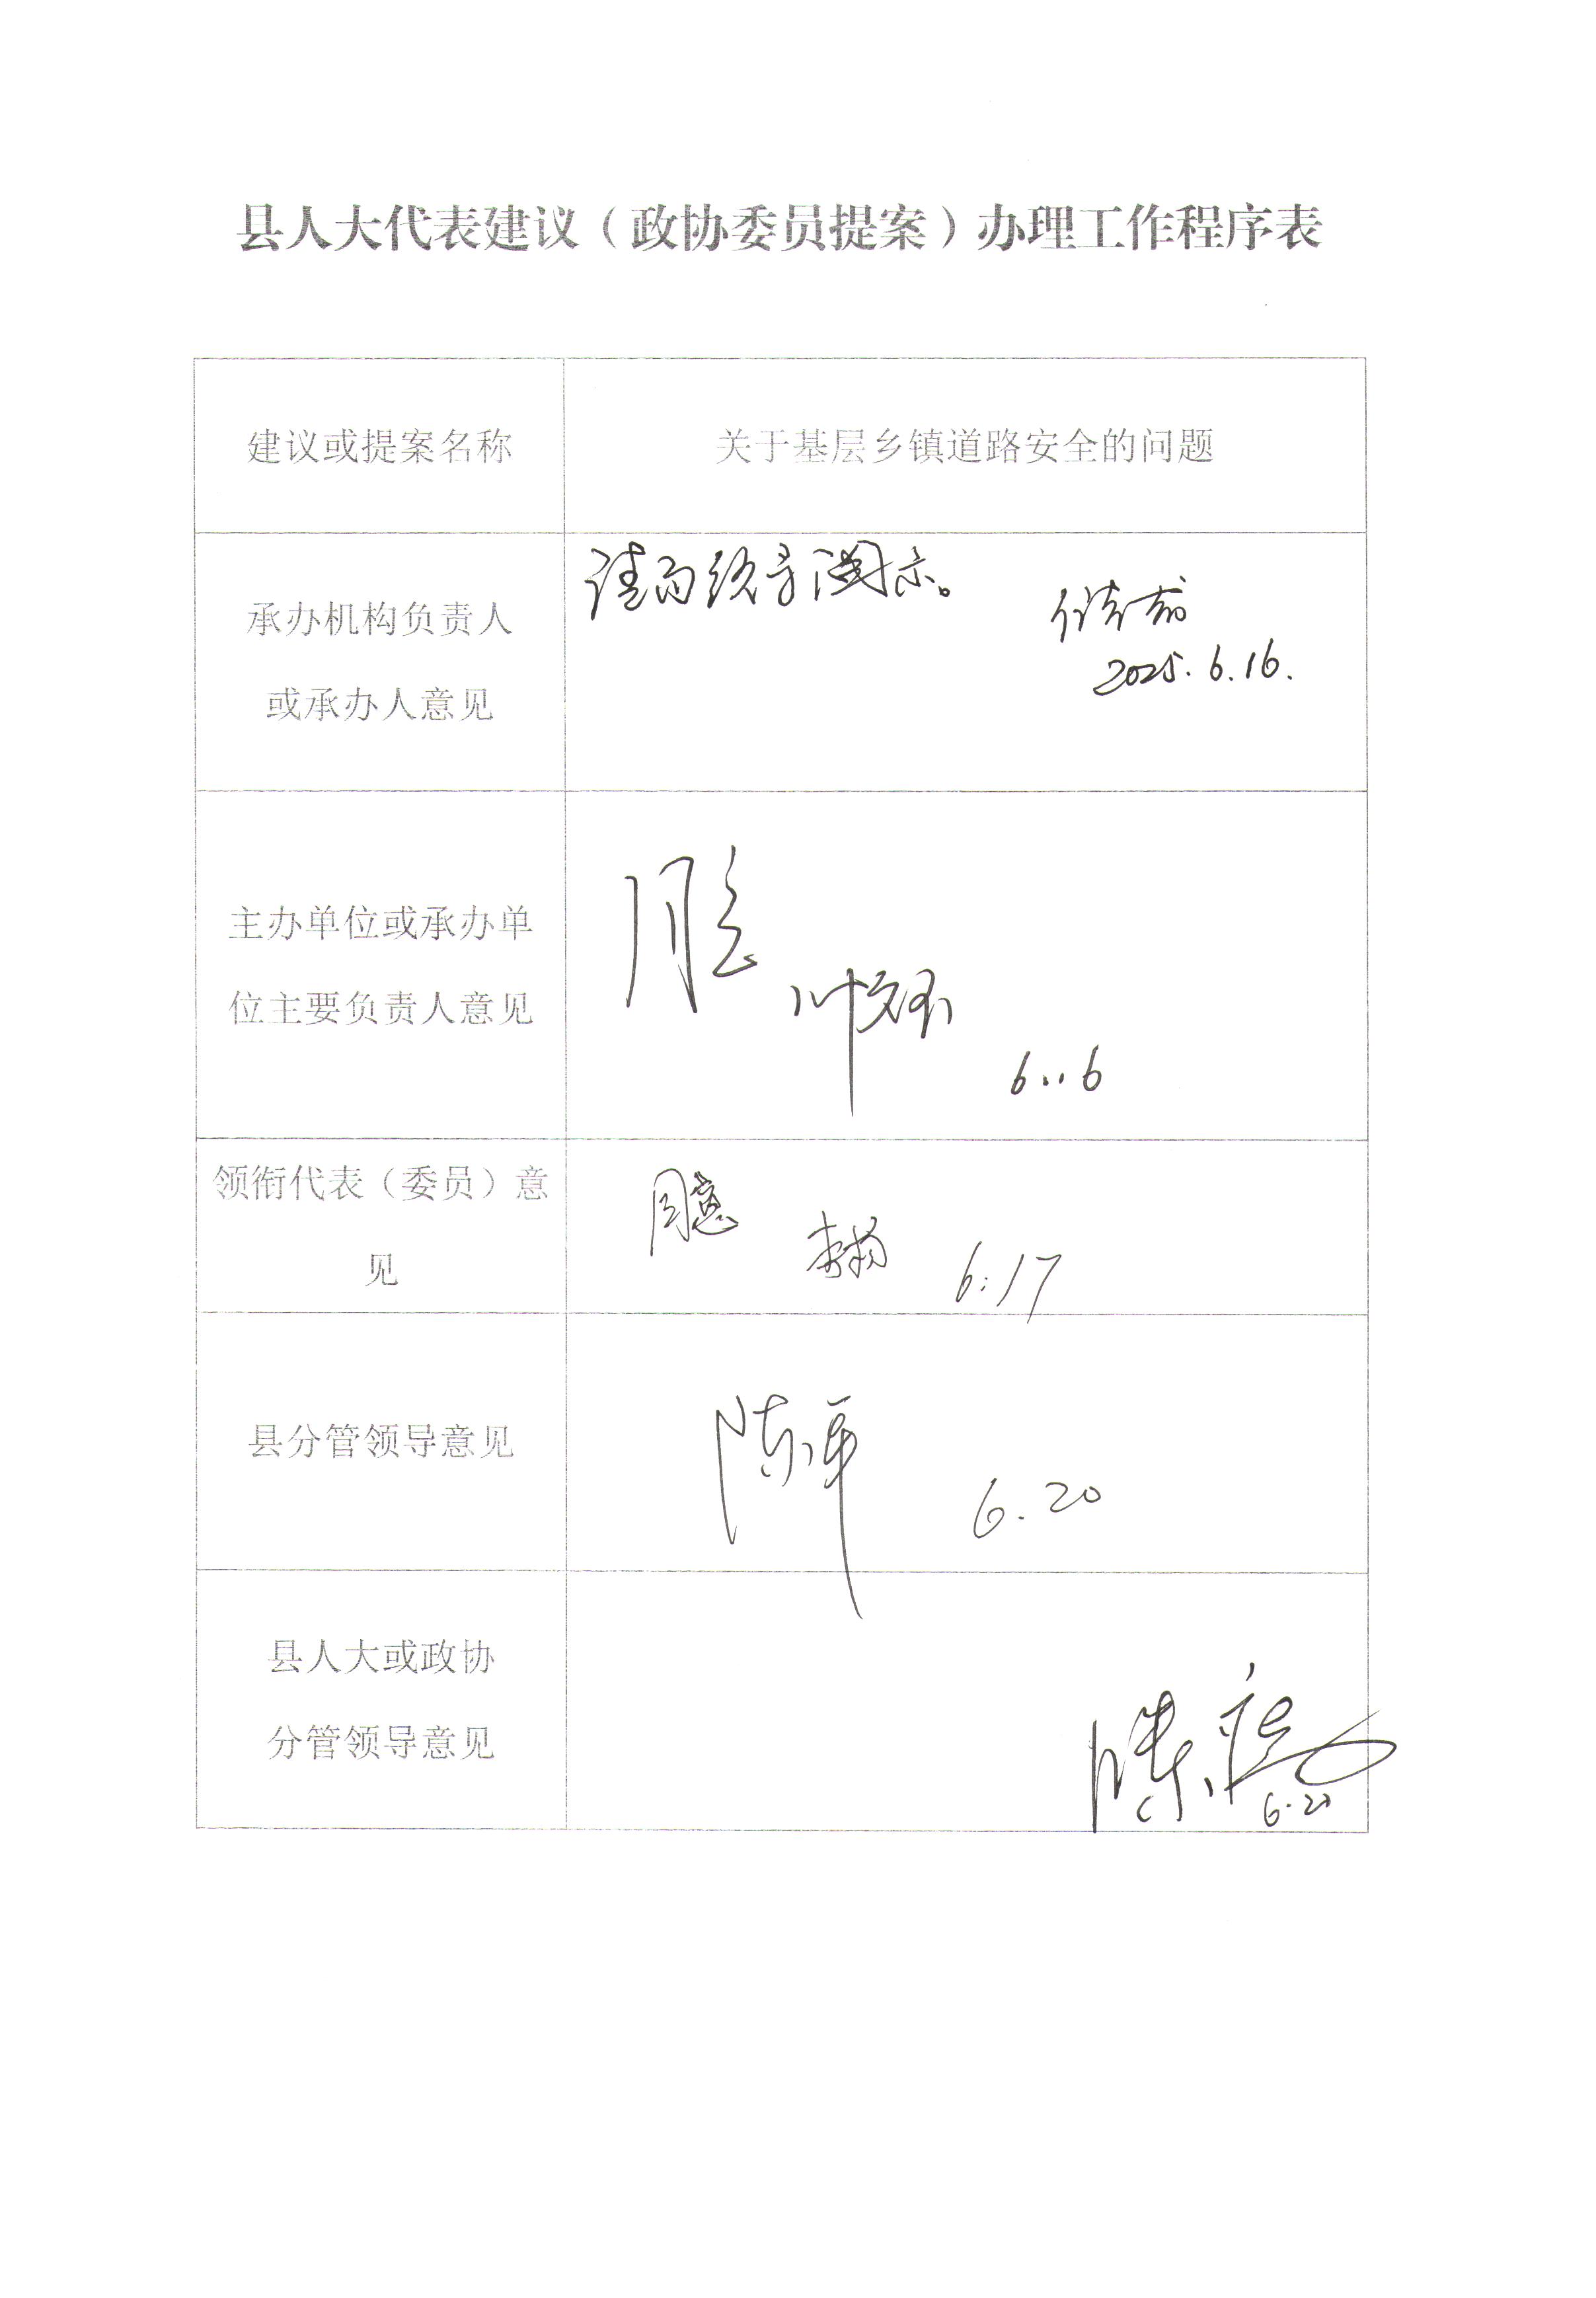 县人大代表建议（政协委员提案）办理工作程序表
建议或提案名称
关于基层乡镇道路安全的问题
承办机构负责人
或承办人意见
请局领导阅示。
2025.6.16.
主办单位或承办单
位主要负责人意见
同意
6..6
领衔代表（委员）意
见
同意
6.17
县分管领导意见
陈军
6.20
县人大或政协
分管领导意见
6.20